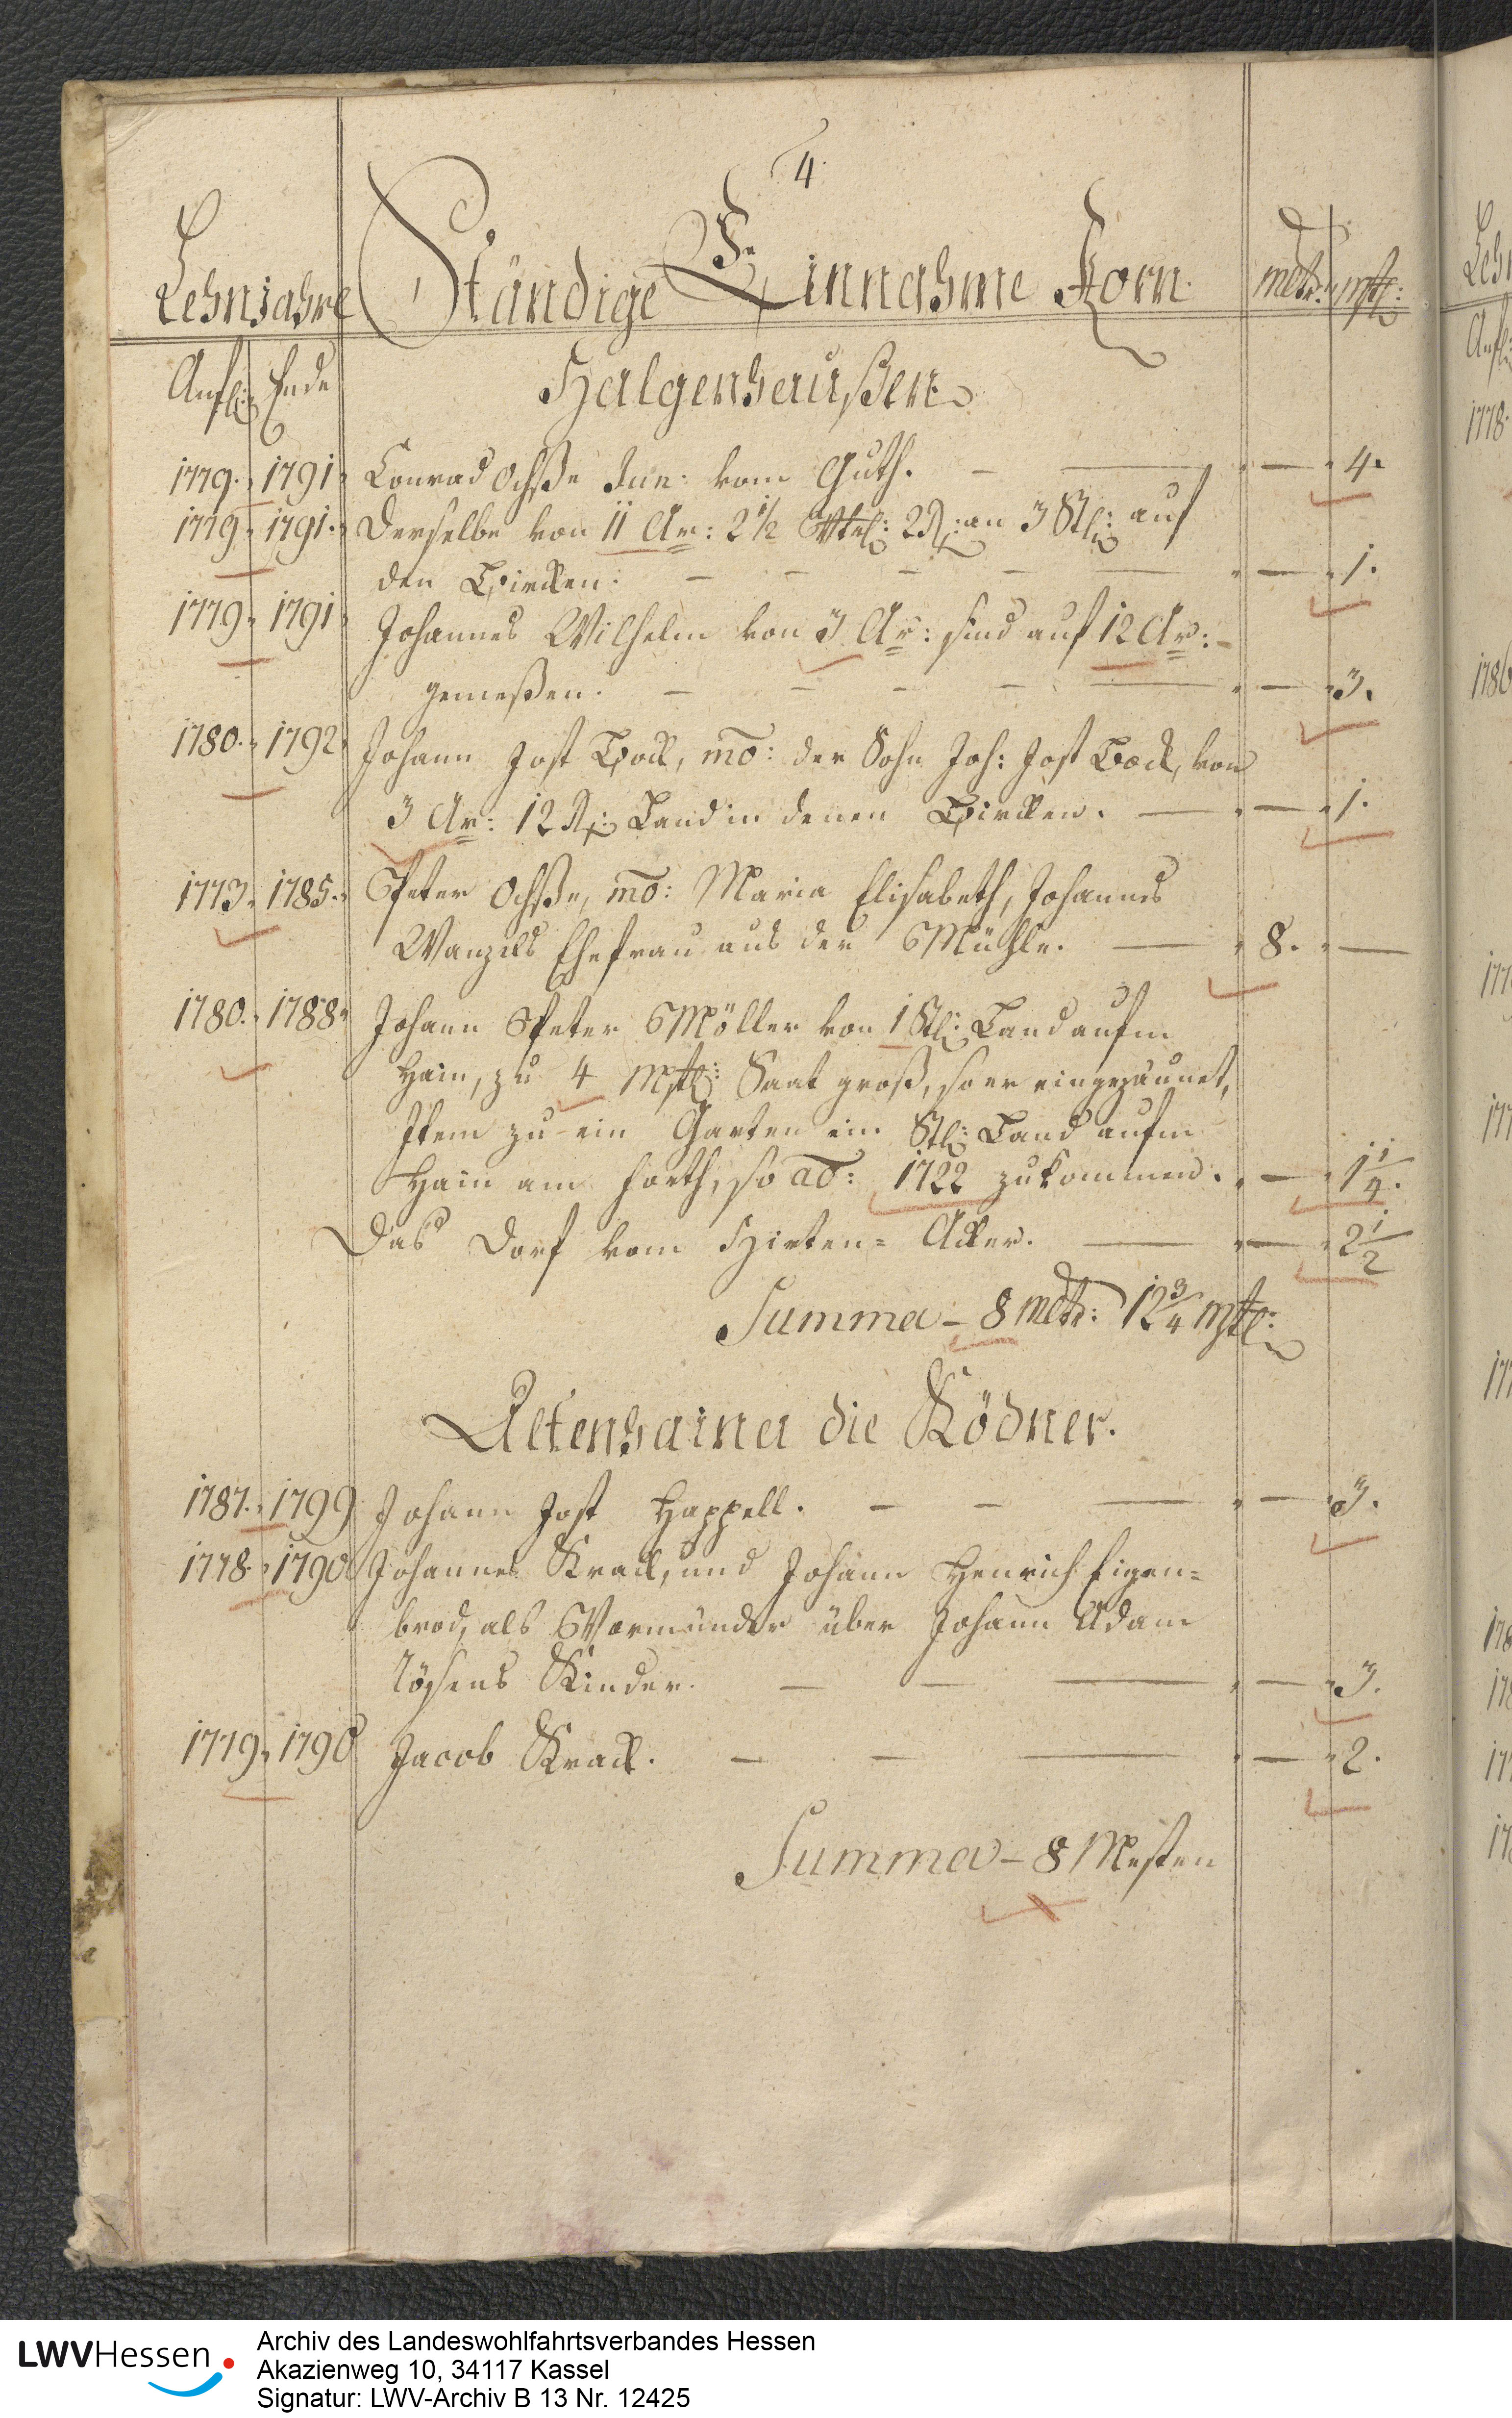 4.
Lehnjahre Ständige Einnahme Korn. mltr: mßtl:
Anfl: Ende
Halgenhaußen.
1779. 1791. Conrad Ochße Jun: vom Guth. — — " — " 4.
1779. 1791. Derselbe von 11 Ar: 2 1/2 Vtel: 2 R: an 3 Stl: auf
den Bircken. — — — — — " — " 1.
1779. 1791. Johannes Wilhelm von 3 Ar: sind auf 12 Ar:
gemeßen. — — — — — " — " 3.
1780. 1792. Johann Jost Bock, mo: der Sohn Joh: Jost Bock, von
3 Ar: 12 R: Land in denen Bircken. — " — " 1.
1773. 1785. Peter Ochße, mo: Maria Elisabeth, Johannes
Wanzels Ehefrau aus der Mühle. — " 8. " —
1780. 1788. Johann Peter Möller von 1 Stl: Land aufm
Hain, zu 4 Mßtl: Saat groß, so er eingezäunet,
Item zu ein Garten ein Stl: Land aufm
Hain am Forth, so ao: 1722 zukommen. " — " 1 1/4.
Das Dorf vom Hirten= Acker. — " — " 2 1/2
Summa – 8 mltr: 12 3/4 mßtl:
Altenhaina die Ködner.
1787. 1799 Johann Jost Happell. — — — " — " 3.
1778. 1790 Johannes Krack, und Johann Henrich Eigen=
brod, als Vormünder über Johann Adam
Lösens Kinder. — — — " — " 3.
1779. 1790 Jacob Krack. — — — " — " 2.
Summa – 8 Mesten
Leh
Anfl:
1778.
1786
177
177
177
178
178
177
178
LWVHessen
Archiv des Landeswohlfahrtsverbandes Hessen
Akazienweg 10, 34117 Kassel
Signatur: LWV-Archiv B 13 Nr. 12425